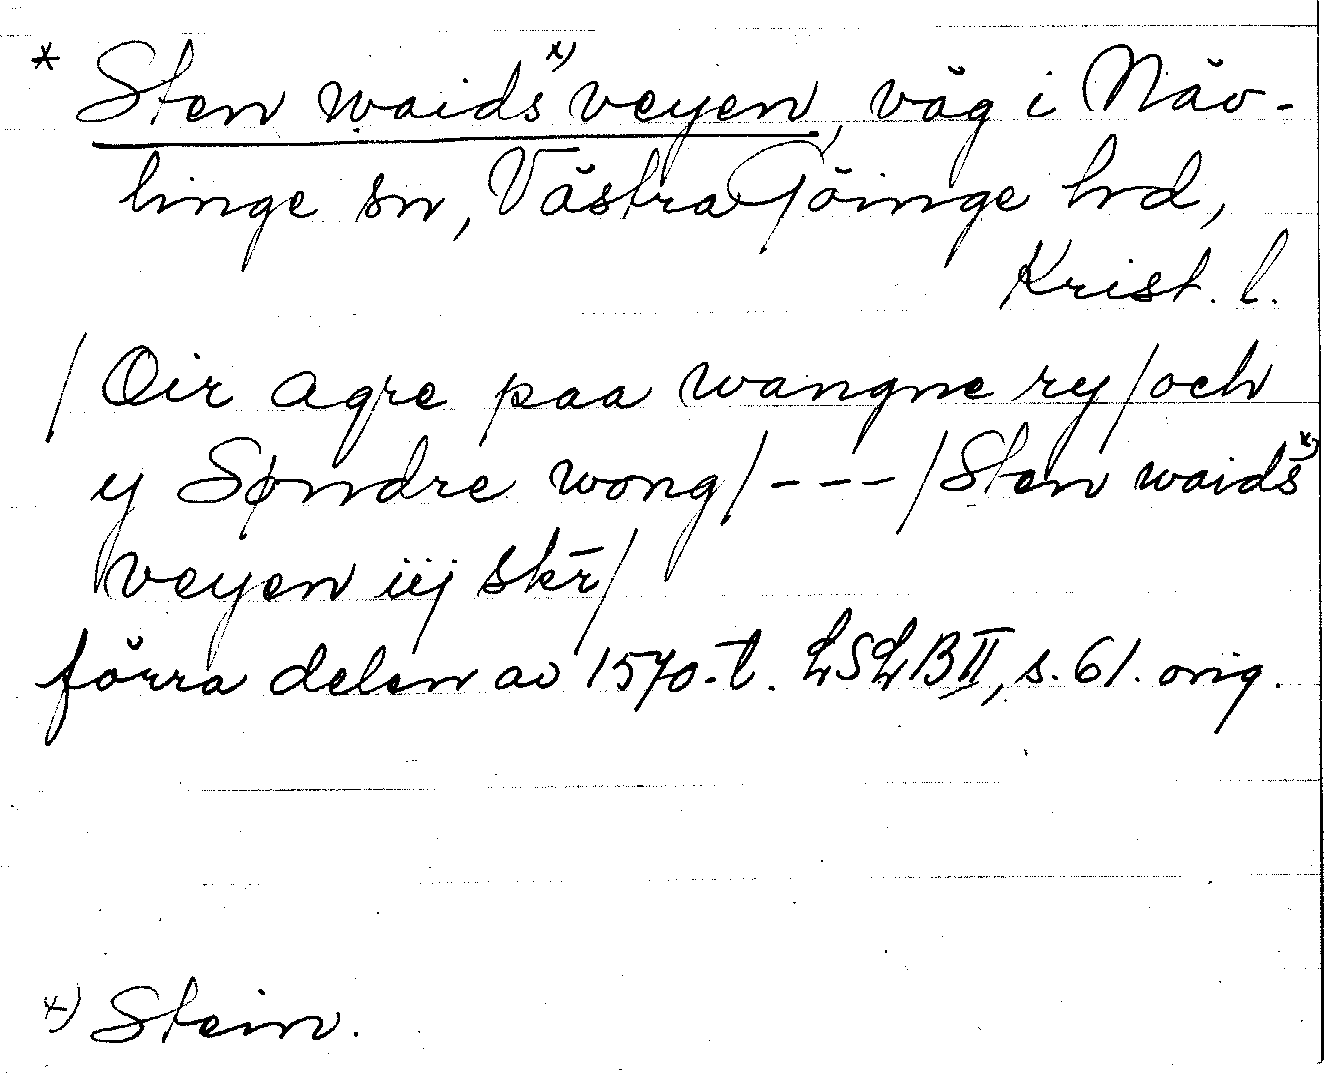 * Sten waids x) veyen, väg i Näv-
linge sn, Västra Göinge hrd,
Krist. l.
/ Oir agre paa wangne ry / och
y Søndre wong / --- / Sten waids x)
veyen iij skr̄ /
förra delen av 1570-t. LSLB II, s. 61. orig.
x) Stein.